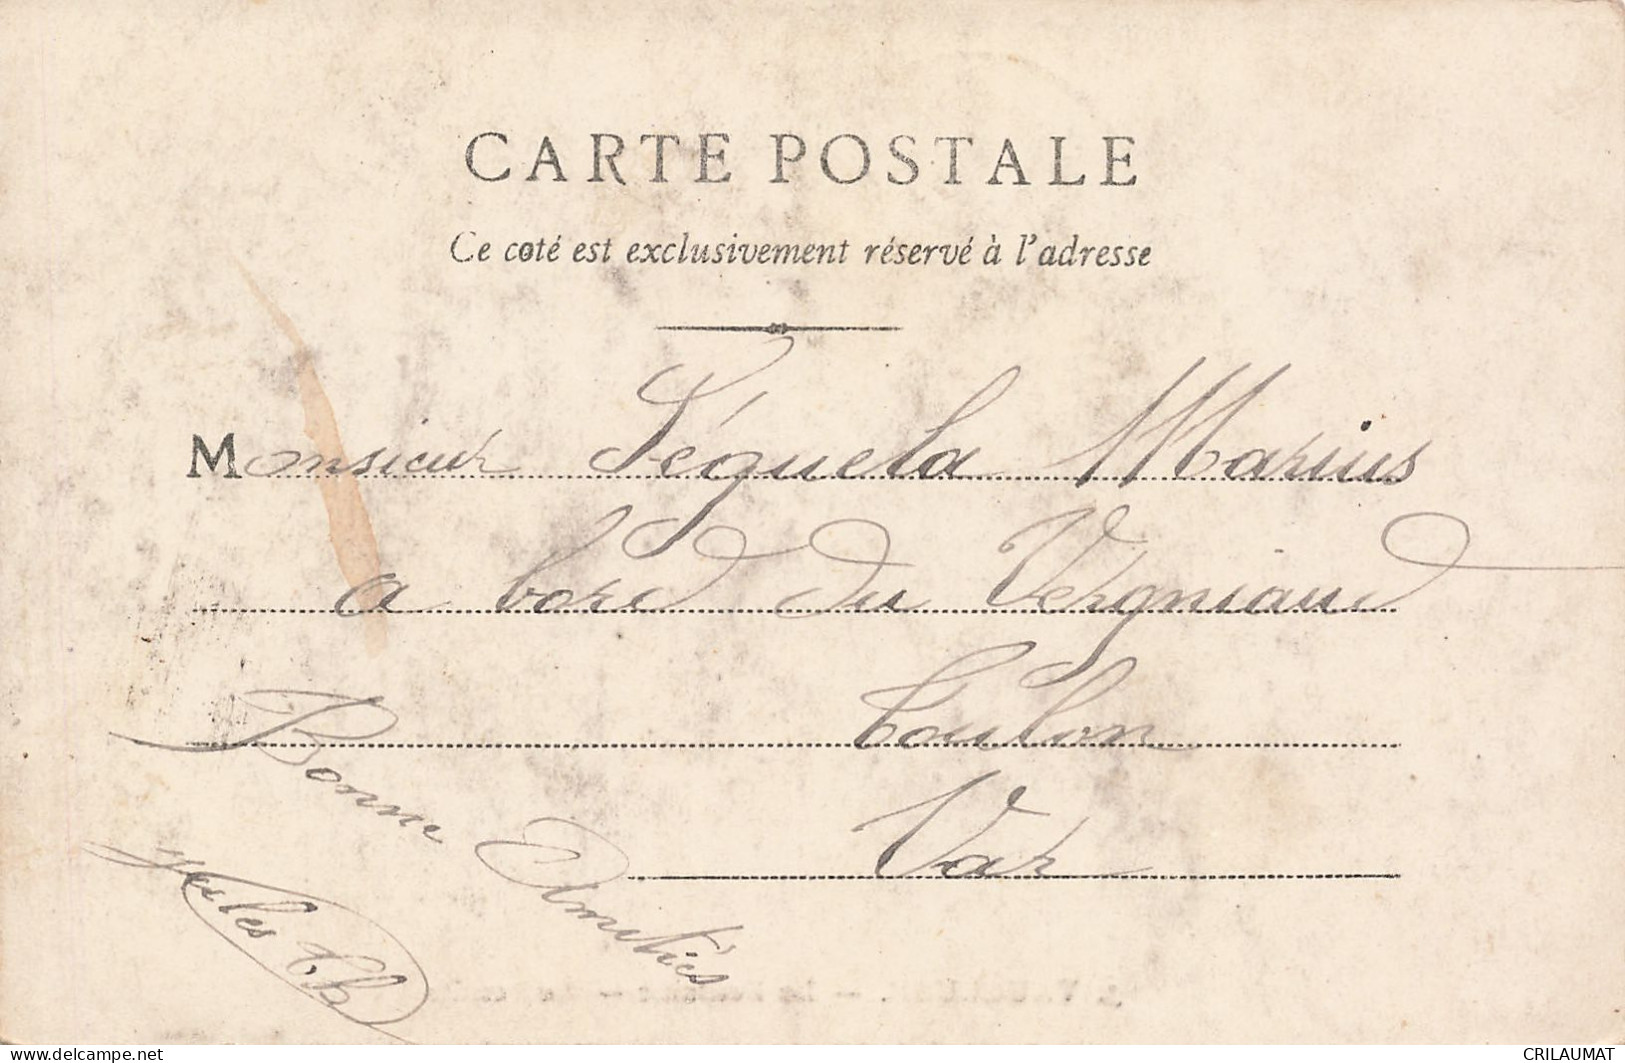 CARTE POSTALE
Ce coté est exclusivement réservé à l'adresse
Monsieur Séguela Marius
a bord du Vergniaud
Toulon
Var
Bonne Amitiés
Jules
www.delcampe.net
CRILAUMAT